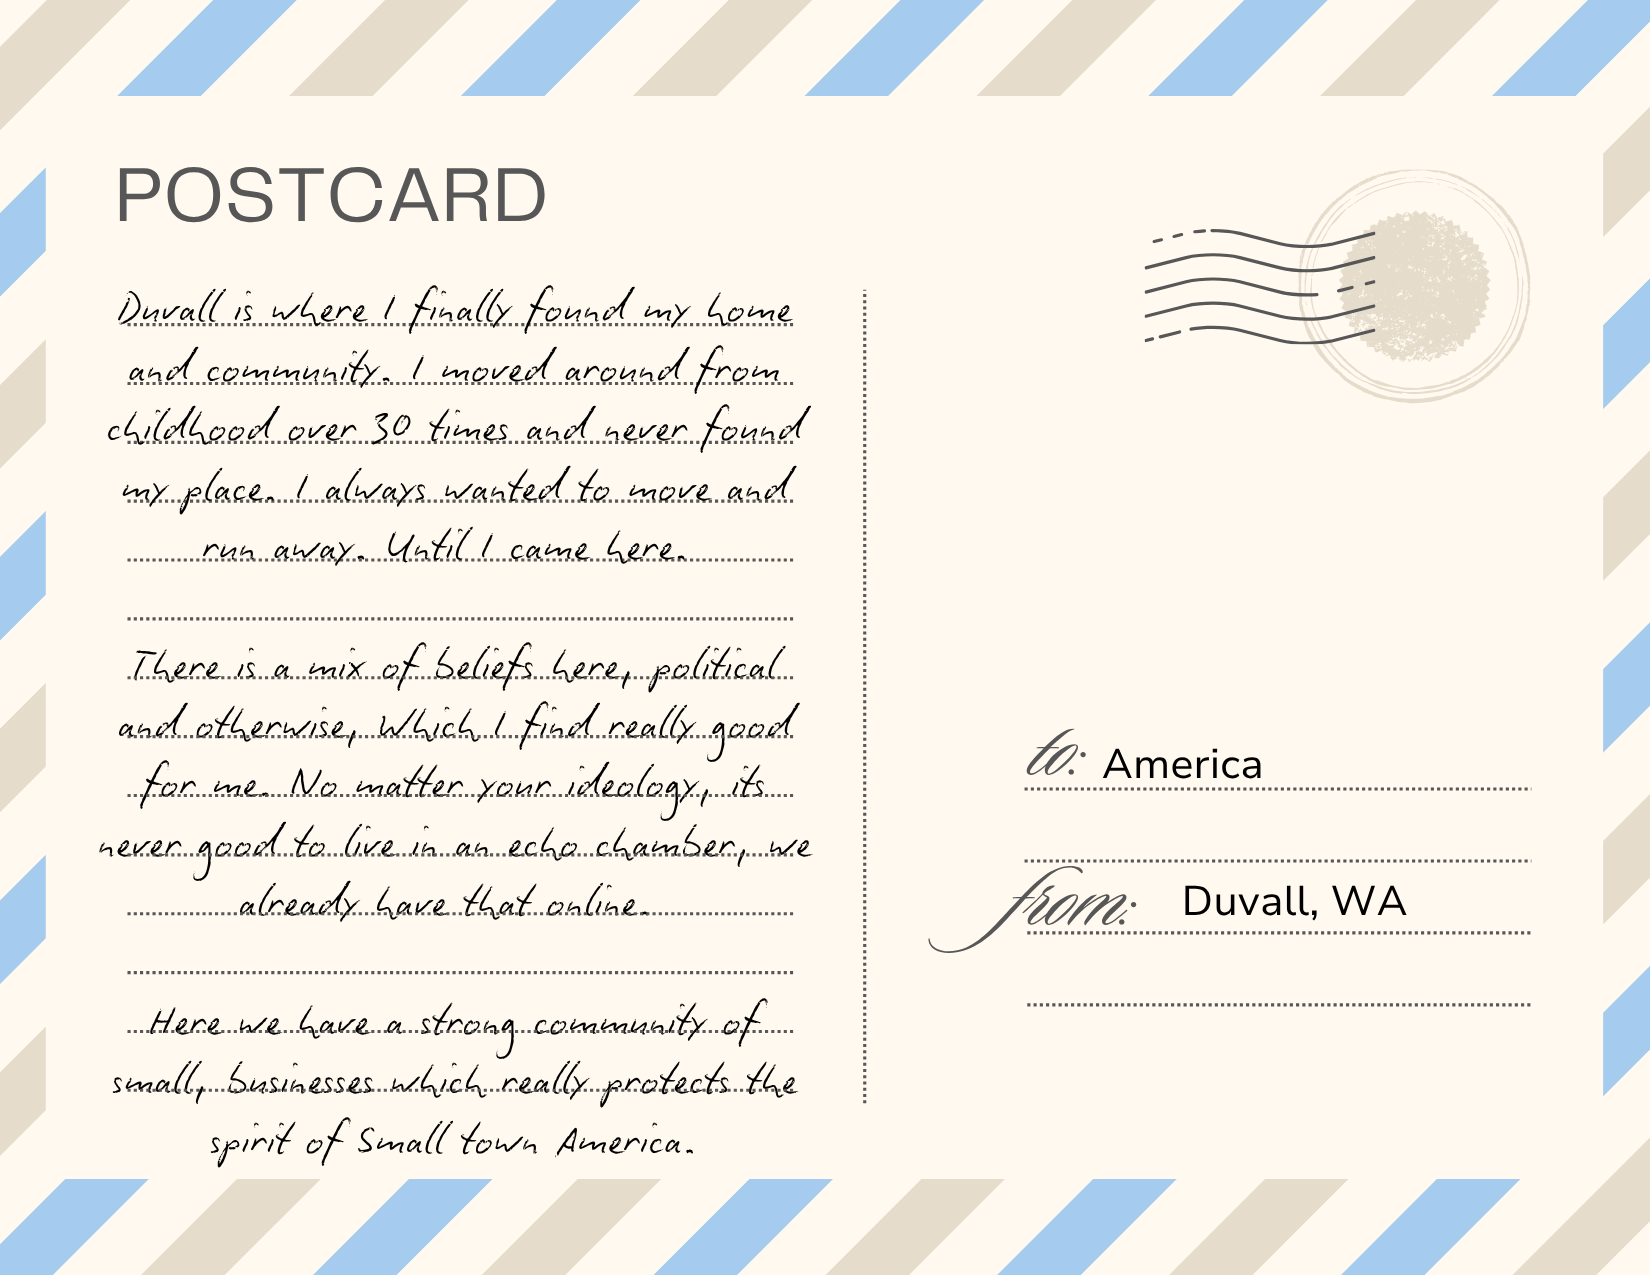 POSTCARD
Duvall is where I finally found my home
and community. I moved around from
childhood over 30 times and never found
my place. I always wanted to move and
run away. Until I came here.
There is a mix of beliefs here, political
and otherwise, Which I find really good
for me. No matter your ideology, its
never good to live in an echo chamber, we
already have that online.
Here we have a strong community of
small, businesses which really protects the
spirit of Small town America.
to: America
from: Duvall, WA